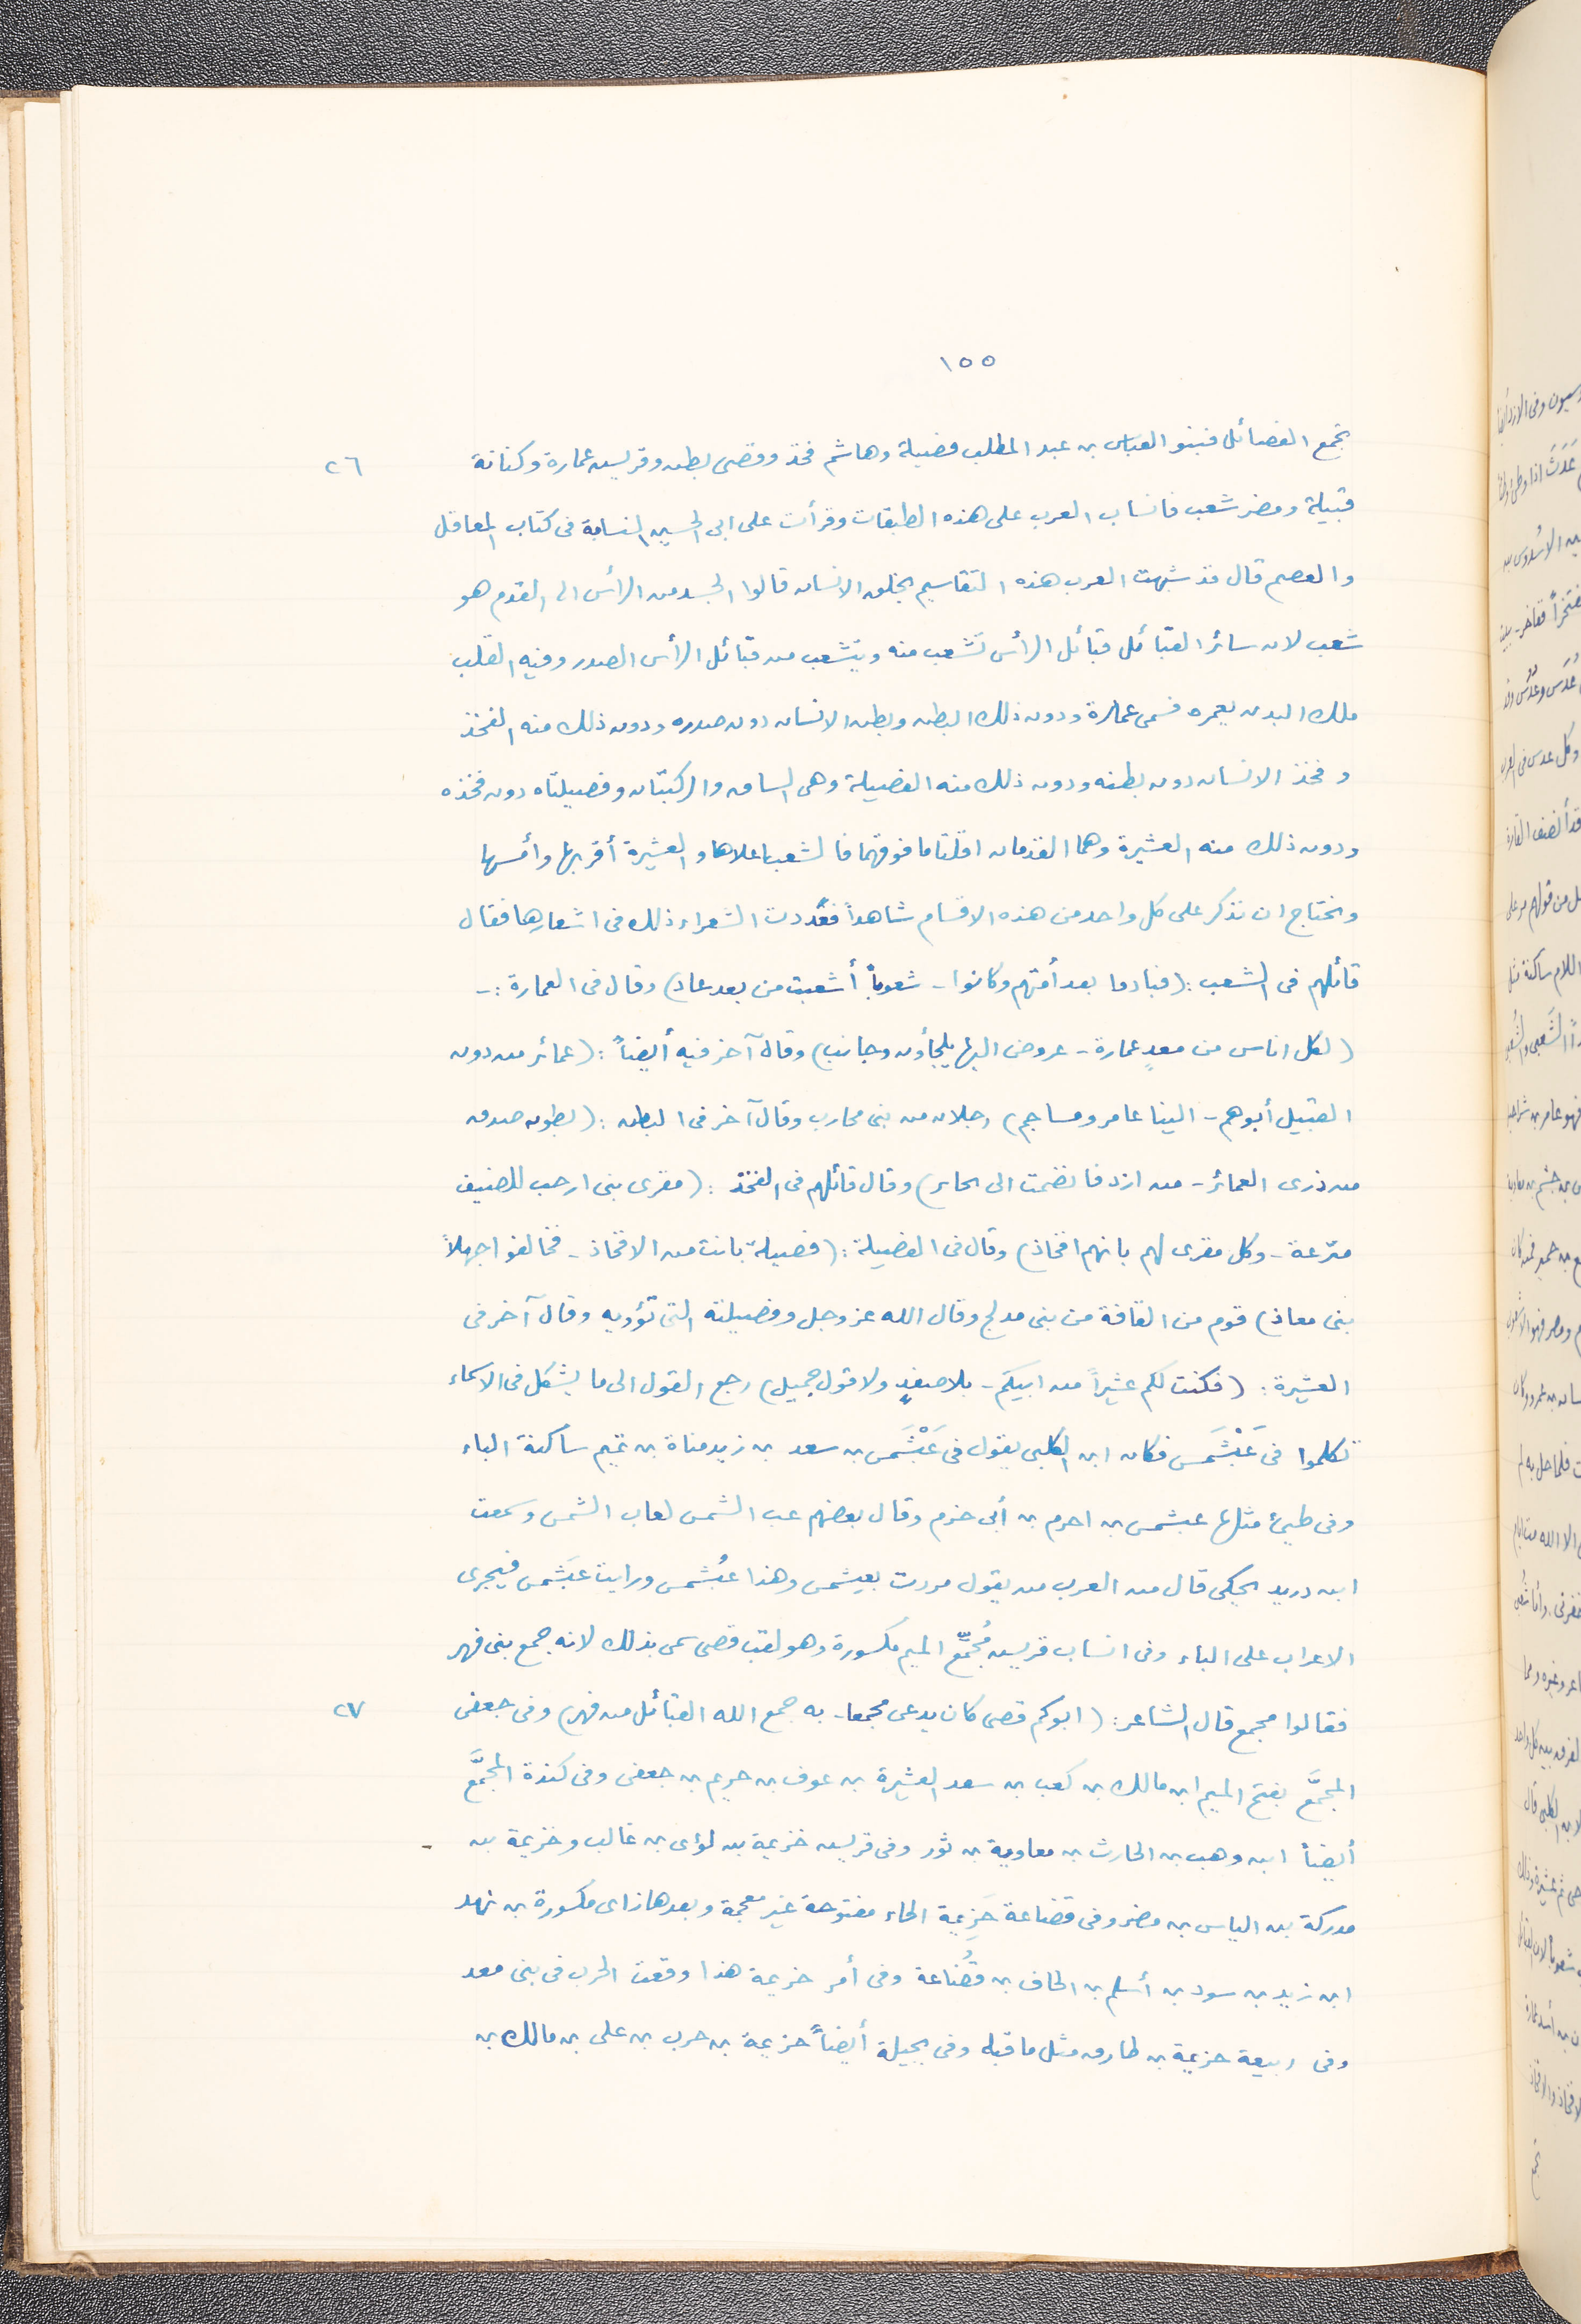 ١٥٥
تجمع الفصائل فبنو العباس بن عبد المطلب فصيلة وهاشم فخذ وقصى بطن وقريش عمارة وكنانة
٢٦
قبيلة ومضر شعب فانساب العرب على هذه الطبقات وقرأت على ابى الحسين النسابة فى كتاب المعاقل
والعصم قال قد شبهت العرب هذه التقاسيم بخلق الانسان قالوا الجسد من الرأس الى القدم هو
شعب لان سائر القبائل قبائل الرأس تشعب منه ويتشعب من قبائل الرأس الصدر وفيه القلب
ملك البدن يعمره فسمى عمارة ودون ذلك البطن وبطن الانسان دون صدره ودون ذلك منه الفخذ
وفخذ الانسان دون بطنه ودون ذلك منه الفصيلة وهى الساق والركبتان وفصيلتاه دون فخذه
ودون ذلك منه العشيرة وهما القدمان اقلتا ما فوقهما فالشعب اعلاها والعشيرة أقربها وأمسها
ونحتاج ان نذكر على كل واحد من هذه الاقسام شاهداً فقد عددت الشعراء ذلك فى اشعارها فقال
قائلهم فى الشعب : (فبادوا بعد أمتهم وكانوا - شعوباً أشعبت من بعد عاد) وقال فى العمارة :-
(لكل اناس من معدٍ عمارة - عروض اليها يلجأون وجانب) وقال آخر فيه أيضاً : (عمائر من دون
القبيل أبوهم - الينا عامر ومساجم) رجلان من بنى محارب وقال آخر فى البطن : (بطون صدق
من ذرى العمائر - من ازد فانضمت الى الحاير) وقال قائلهم فى الفخذ : (مقرى بنى ارحب للضيف
مترعة - وكل مقرى لهم بانهم افخاذ) وقال فى الفصيلة : (فصيلة بانت من الافخاذ - فخالفوا جهلاً
بنى معاذ) قوم من القافة من بنى مدلج وقال الله عز وجل وفصيلته التى تؤويه وقال آخر فى
العشيرة : (فكنت لكم عشيراً من ابيكم - بلا صفدٍ ولا قول جميل) رجع القول الى ما يشكل فى الاسماء
تكلموا فى عَبْشَمس فكان ابن الكلبى يقول فى عَبْشَمس بن سعد بن زيد مناة بن تميم ساكنة الباء
وفى طيئ مثلها عبشمس بن احزم بن أبى حزم وقال بعضهم عب الشمس لعاب الشمس وسمعت
ابن دريد يحكى قال من العرب من يقول مررت بعبشمس وهذا عبُشمس ورايت عبَشمس فيجرى
الاعراب على الباء وفى انساب قريش مُجمِّع الميم مكسورة وهو لقب قصى سمى بذلك لانه جمع بنى فهر
فقالوا مجمع قال الشاعر : (ابوكم قصى كان يدعى مجمعا - به جمع الله القبائل من فهر) وفى جعفى
٢٧
المجمَّع بفتح الميم ابن مالك بن كعب بن سعد العشيرة بن عوف بن حريم بن جعفى وفى كندة المجمَّع
أيضاً ابن وهب بن الحارث بن معاوية بن ثور وفى قريش خزيمة بن لؤى بن غالب وخزيمة بن
مدركة بن الياس بن مضر وفى قضاعة حَزِيمة الحاء مفتوحة غير معجمة وبعدها زاى مكسورة بن نهد
ابن زيد بن سود بن أسلم بن الحاف بن قُضاعة وفى أمر حزيمة هذا وقعت الحرب فى بنى معد
وفى ربيعة حزيمة بن طارق مثل ما قبله وفى بجيلة أيضاً حزيمة بن حرب بن على بن مالك بن